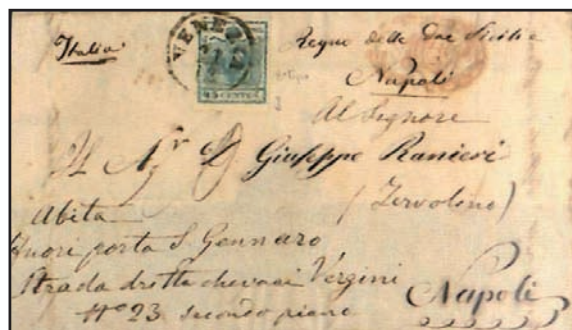 Italia
VENEZ
Regno delle Due Sicilie
45 CENTES
Napoli
Al Signore
Il Sigr D Giuseppe Ranieri
(Zervolino)
Abita
Fuori porta S. Gennaro
Strada dritta che va ai Vergini
No 23 secondo piano
Napoli